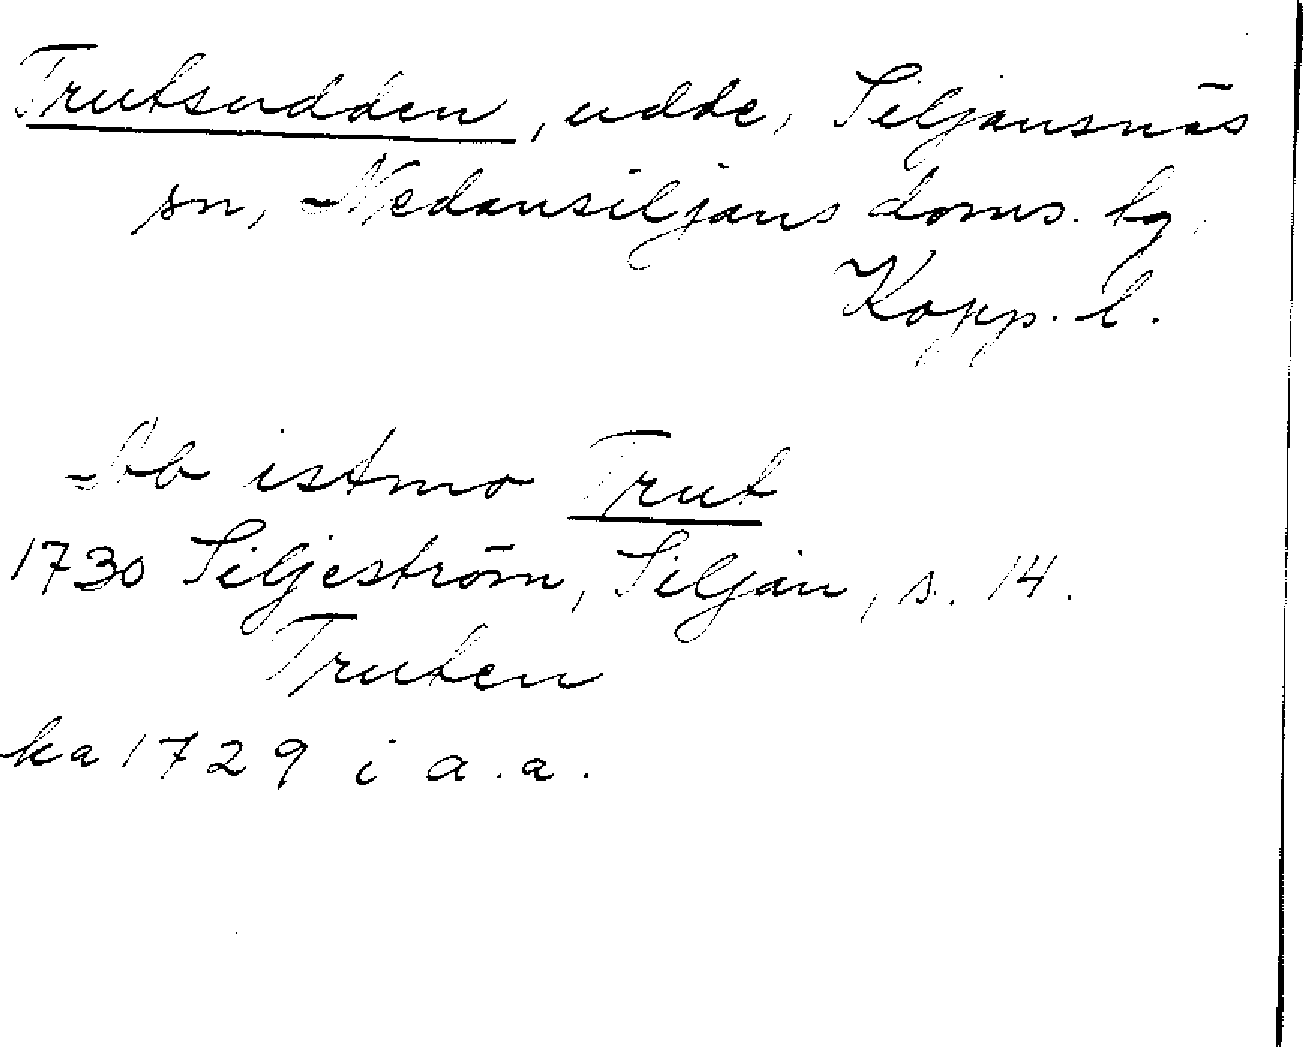 Trutsudden, udde, Siljansnäs
sn, Nedansiljans doms. hg,
Kopp. l.
Ob istmo Trut
1730 Siljeström, Siljan, s. 14.
Truten
ka 1729 i a.a.